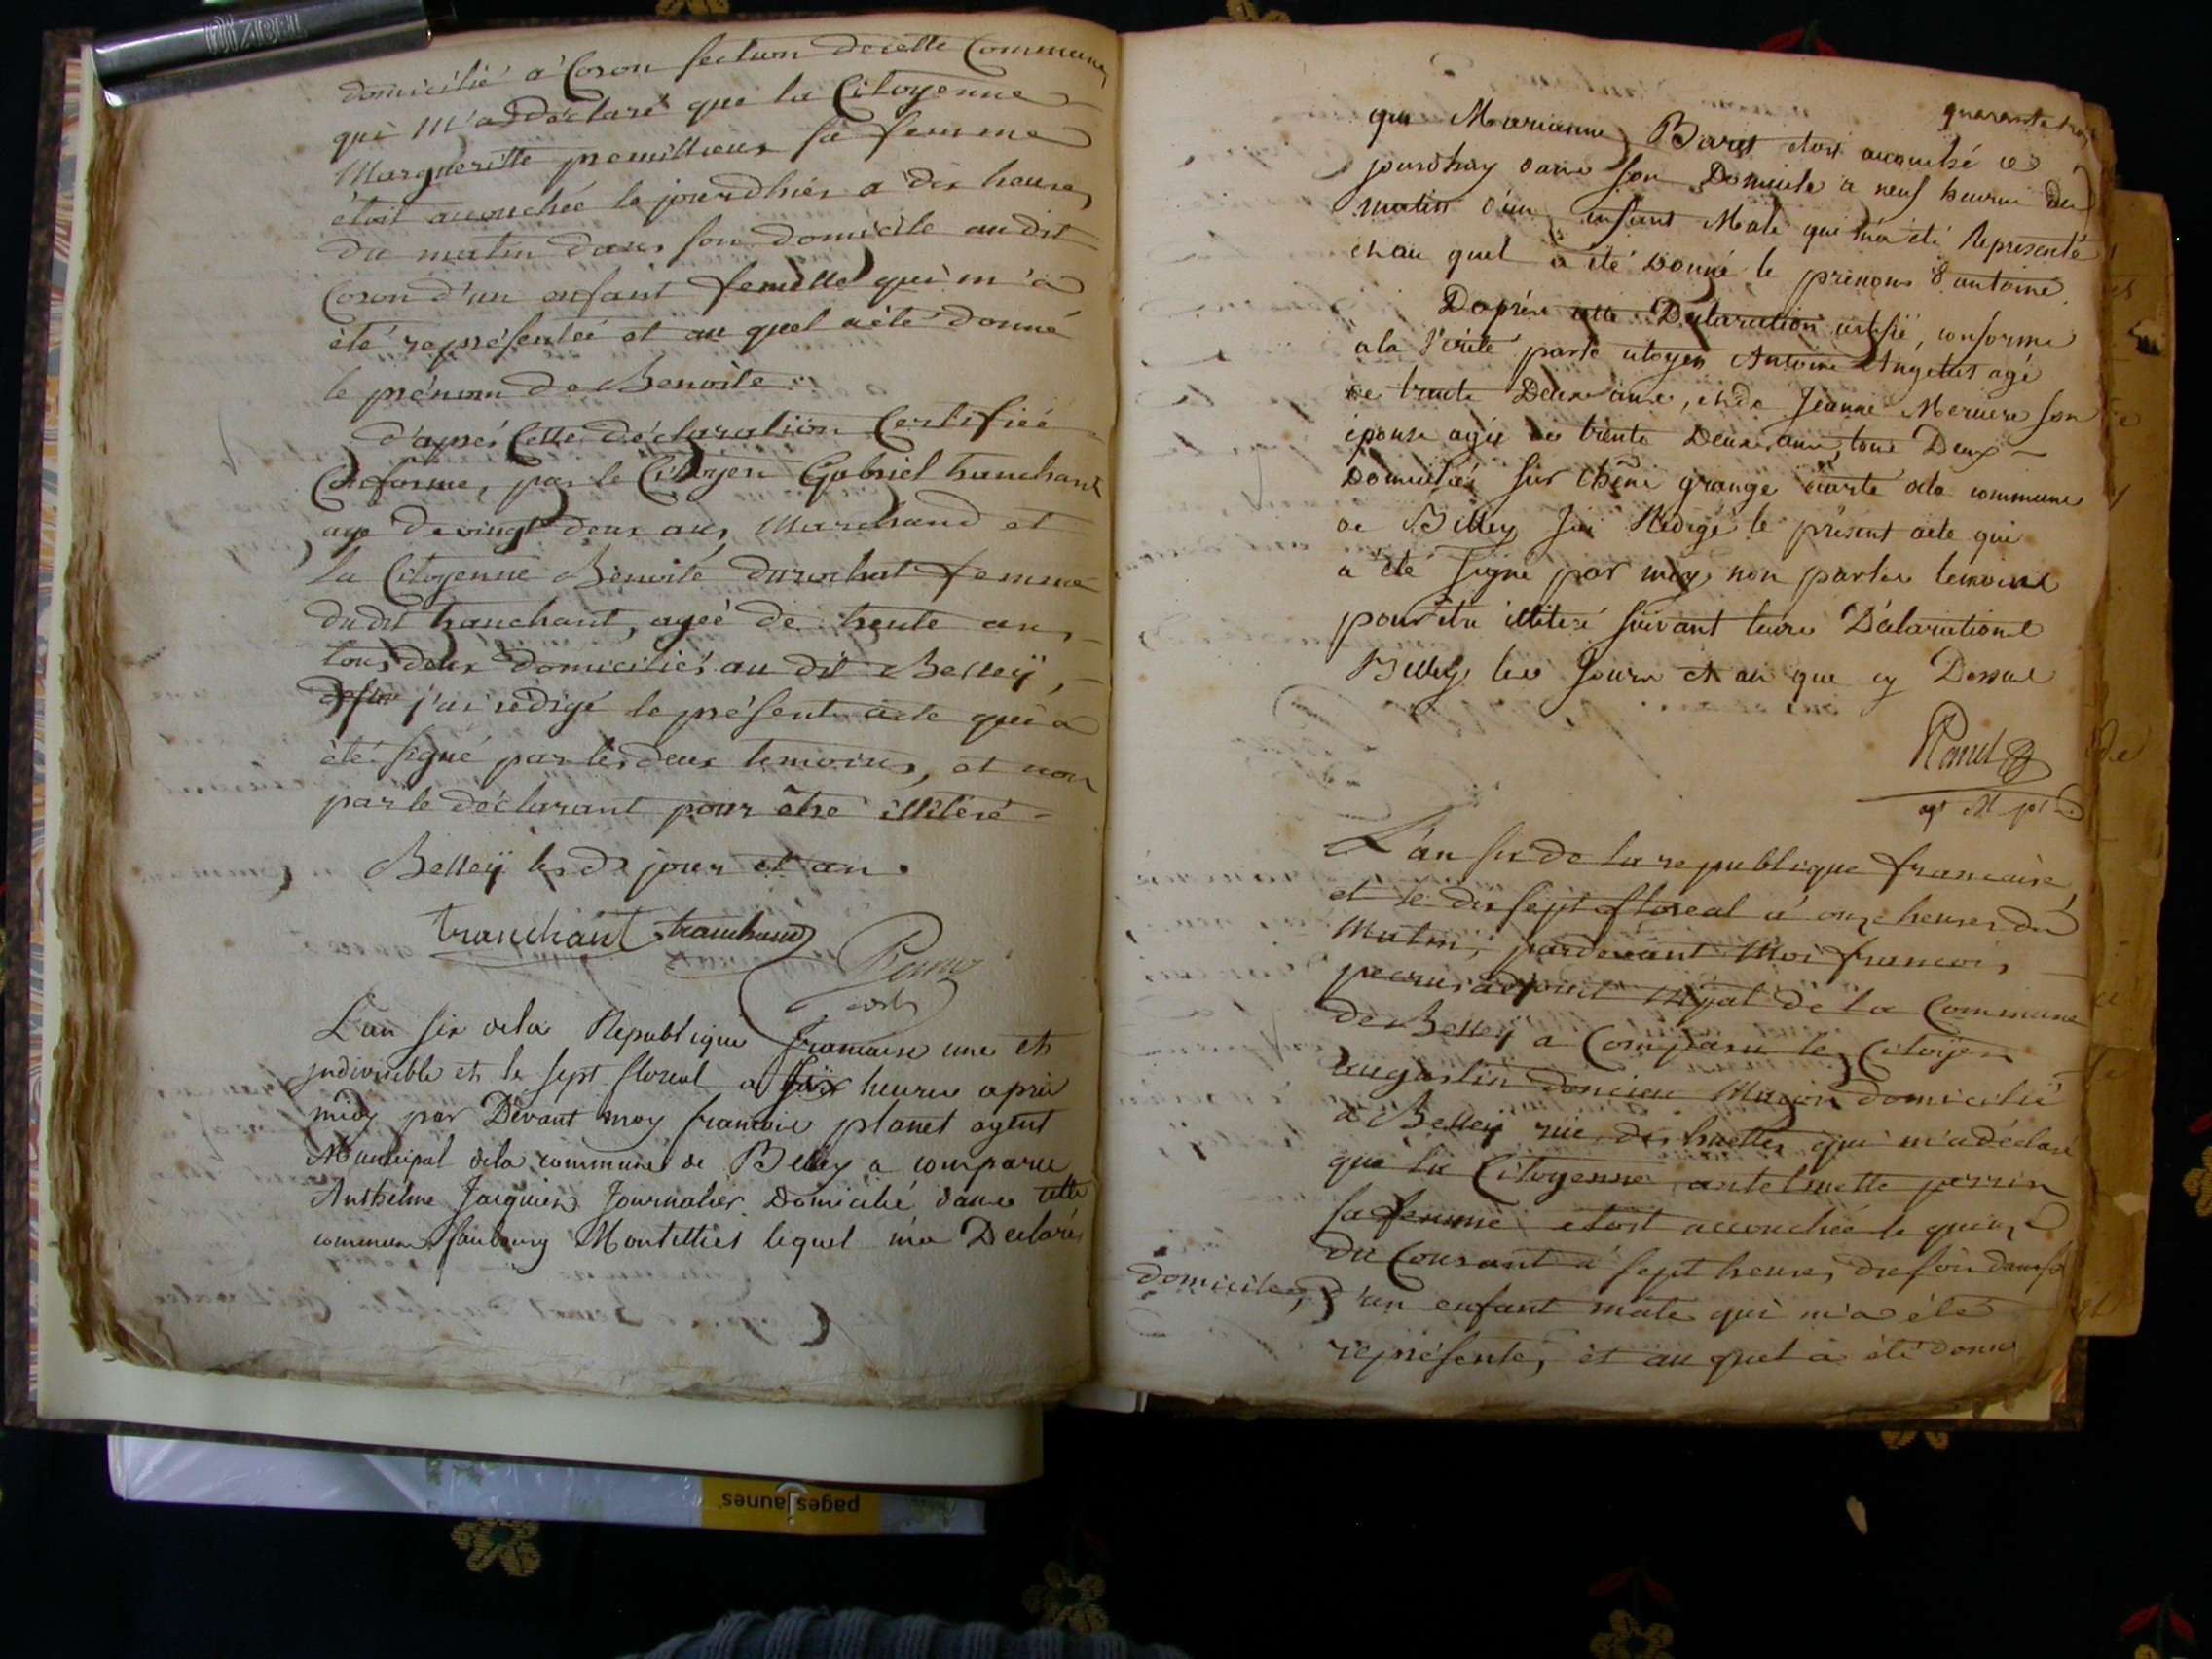 domicilié a Coron section de cette Commune,
qui m'a déclaré que la Citoyenne
Margueritte premillieux sa femme
étoit accouchée le jourdhier a dix heures
du matin dans son domicile audit
Coron d'un enfant femelle qui m'a
été représentée et au quel a été donné
le prénom de Benoite.
d'après Cette déclaration Certifiée
Conforme, par le Citoyen Gabriel tranchant
agé de vingt deux ans, Marchand et
la Citoyenne Benoite durochat femme
dudit tranchant, agée de trente ans,
tous deux domiciliés au dit Belley,
j'ai rédigé le présent acte qui a
été signé par les deux temoins, et non
par le déclarant pour être illiteré
Belley les d. jour et an.
tranchant tranchand
L'an six dela Republique francaise une et
indivisible et le sept floreal a six heures aprés
midy par Devant moy francois planet agent
Municipal dela commune de Belley a comparu
Anthelme Jacquier Journalier Domicilié dans cette
commune faubourg lequel m'a Declaré
quarante
que Marianne etoit accouché ce
jourdhuy dans son Domicile a neuf heures du
matin d'un enfant Male qui m'a été Representé
et au quel a été Donné le prenom d'antoine
Daprès cette Declaration certifié, conforme
a la Verité par le citoyen Antoine agé
de trente Deux ans, et de Jeanne son
epouse agée de trente Deux ans, tous Deux
Domiciliés sur grange dela commune
de Belley Jai Redigé le présent acte qui
a été signé par moy non par les temoins
pour être illiteré suivant leurs Déclarations
Belley les Jours et an que cy Dessus
Planet
agt M pl
L'an six de la republique francaise,
et le dix sept floreal a onze heures du
Matin, pardevant Moi francois
adjoint Mpal de la Commune
de Belley a Comparu le Citoyen
augustin doncieu Macon domicilié
a Belley rue des huettes qui m'a déclaré
que la Citoyenne antelmette perrin
sa femme etoit accouchée le quinze
du Courant a sept heures du soir dans son
domicile, d'un enfant male qui m'a été
représenté, et au quel a été donné
pagesjaunes